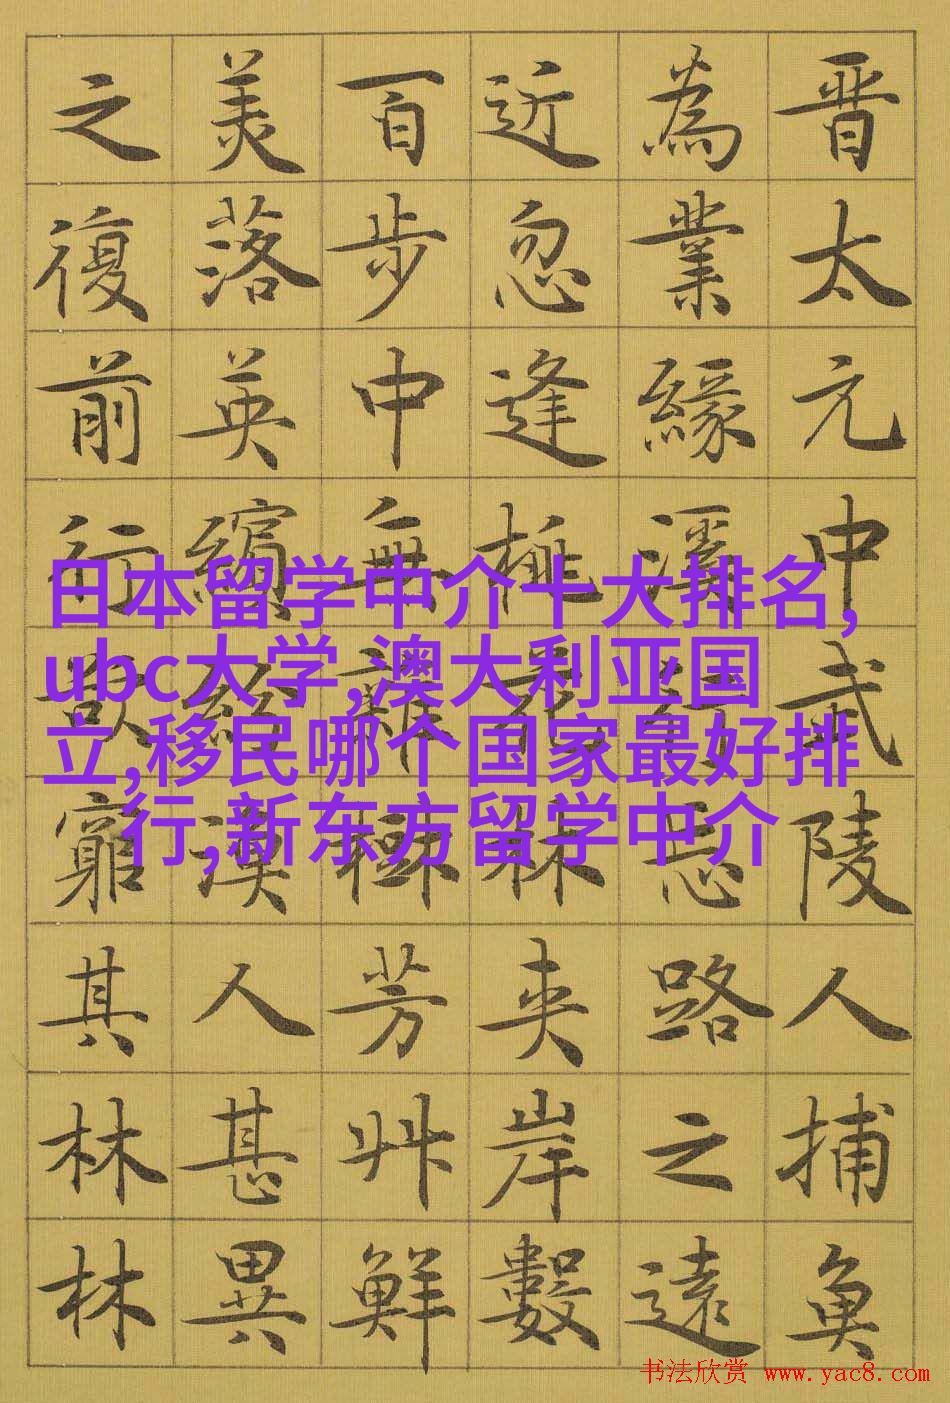 晋太元中武陵人捕魚
為業緣溪行忘路之遠
近忽逢桃花林夾岸數
百步中無雜樹芳艸鮮
美落英繽紛漁人甚異
之復前行欲窮其林林
日本留学中介十大排名,
ubc大学,澳大利亚国
立,移民哪个国家最好排
行,新东方留学中介
书法欣赏 www.yac8.com